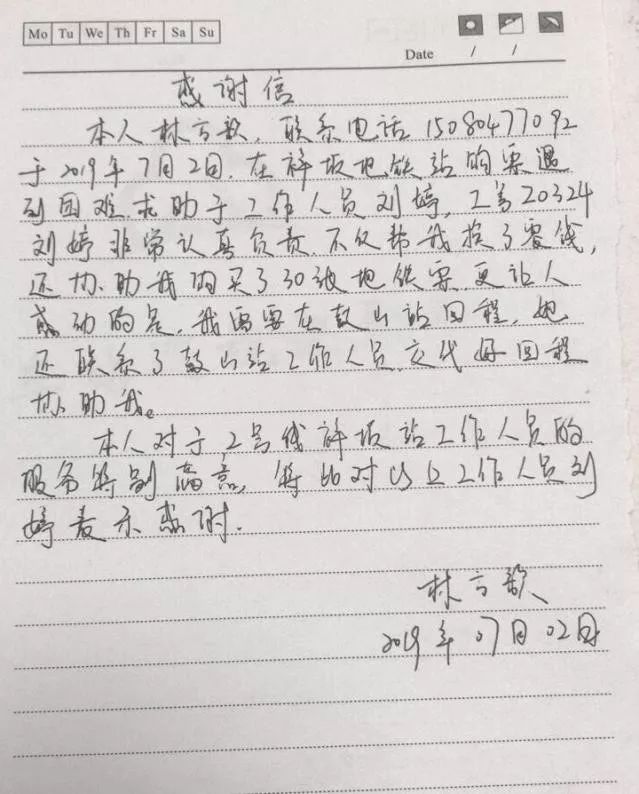 Mo Tu We Th Fr Sa Su
Date / /
感谢信
本人林方歆,联系电话15080477092
于2019年7月2日,在祥坂地铁站购票遇
到困难求助于工作人员刘婷,工号20324
刘婷非常认真负责,不仅帮我换了零钱,
还协助我购买了30张地铁票,更让人
感动的是,我需要在鼓山站回程,她
还联系了鼓山站工作人员,交代好回程
协助我。
本人对于2号线祥坂站工作人员的
服务特别满意,特此对 工作人员刘
婷表示感谢.
林方歆
2019年07月02日